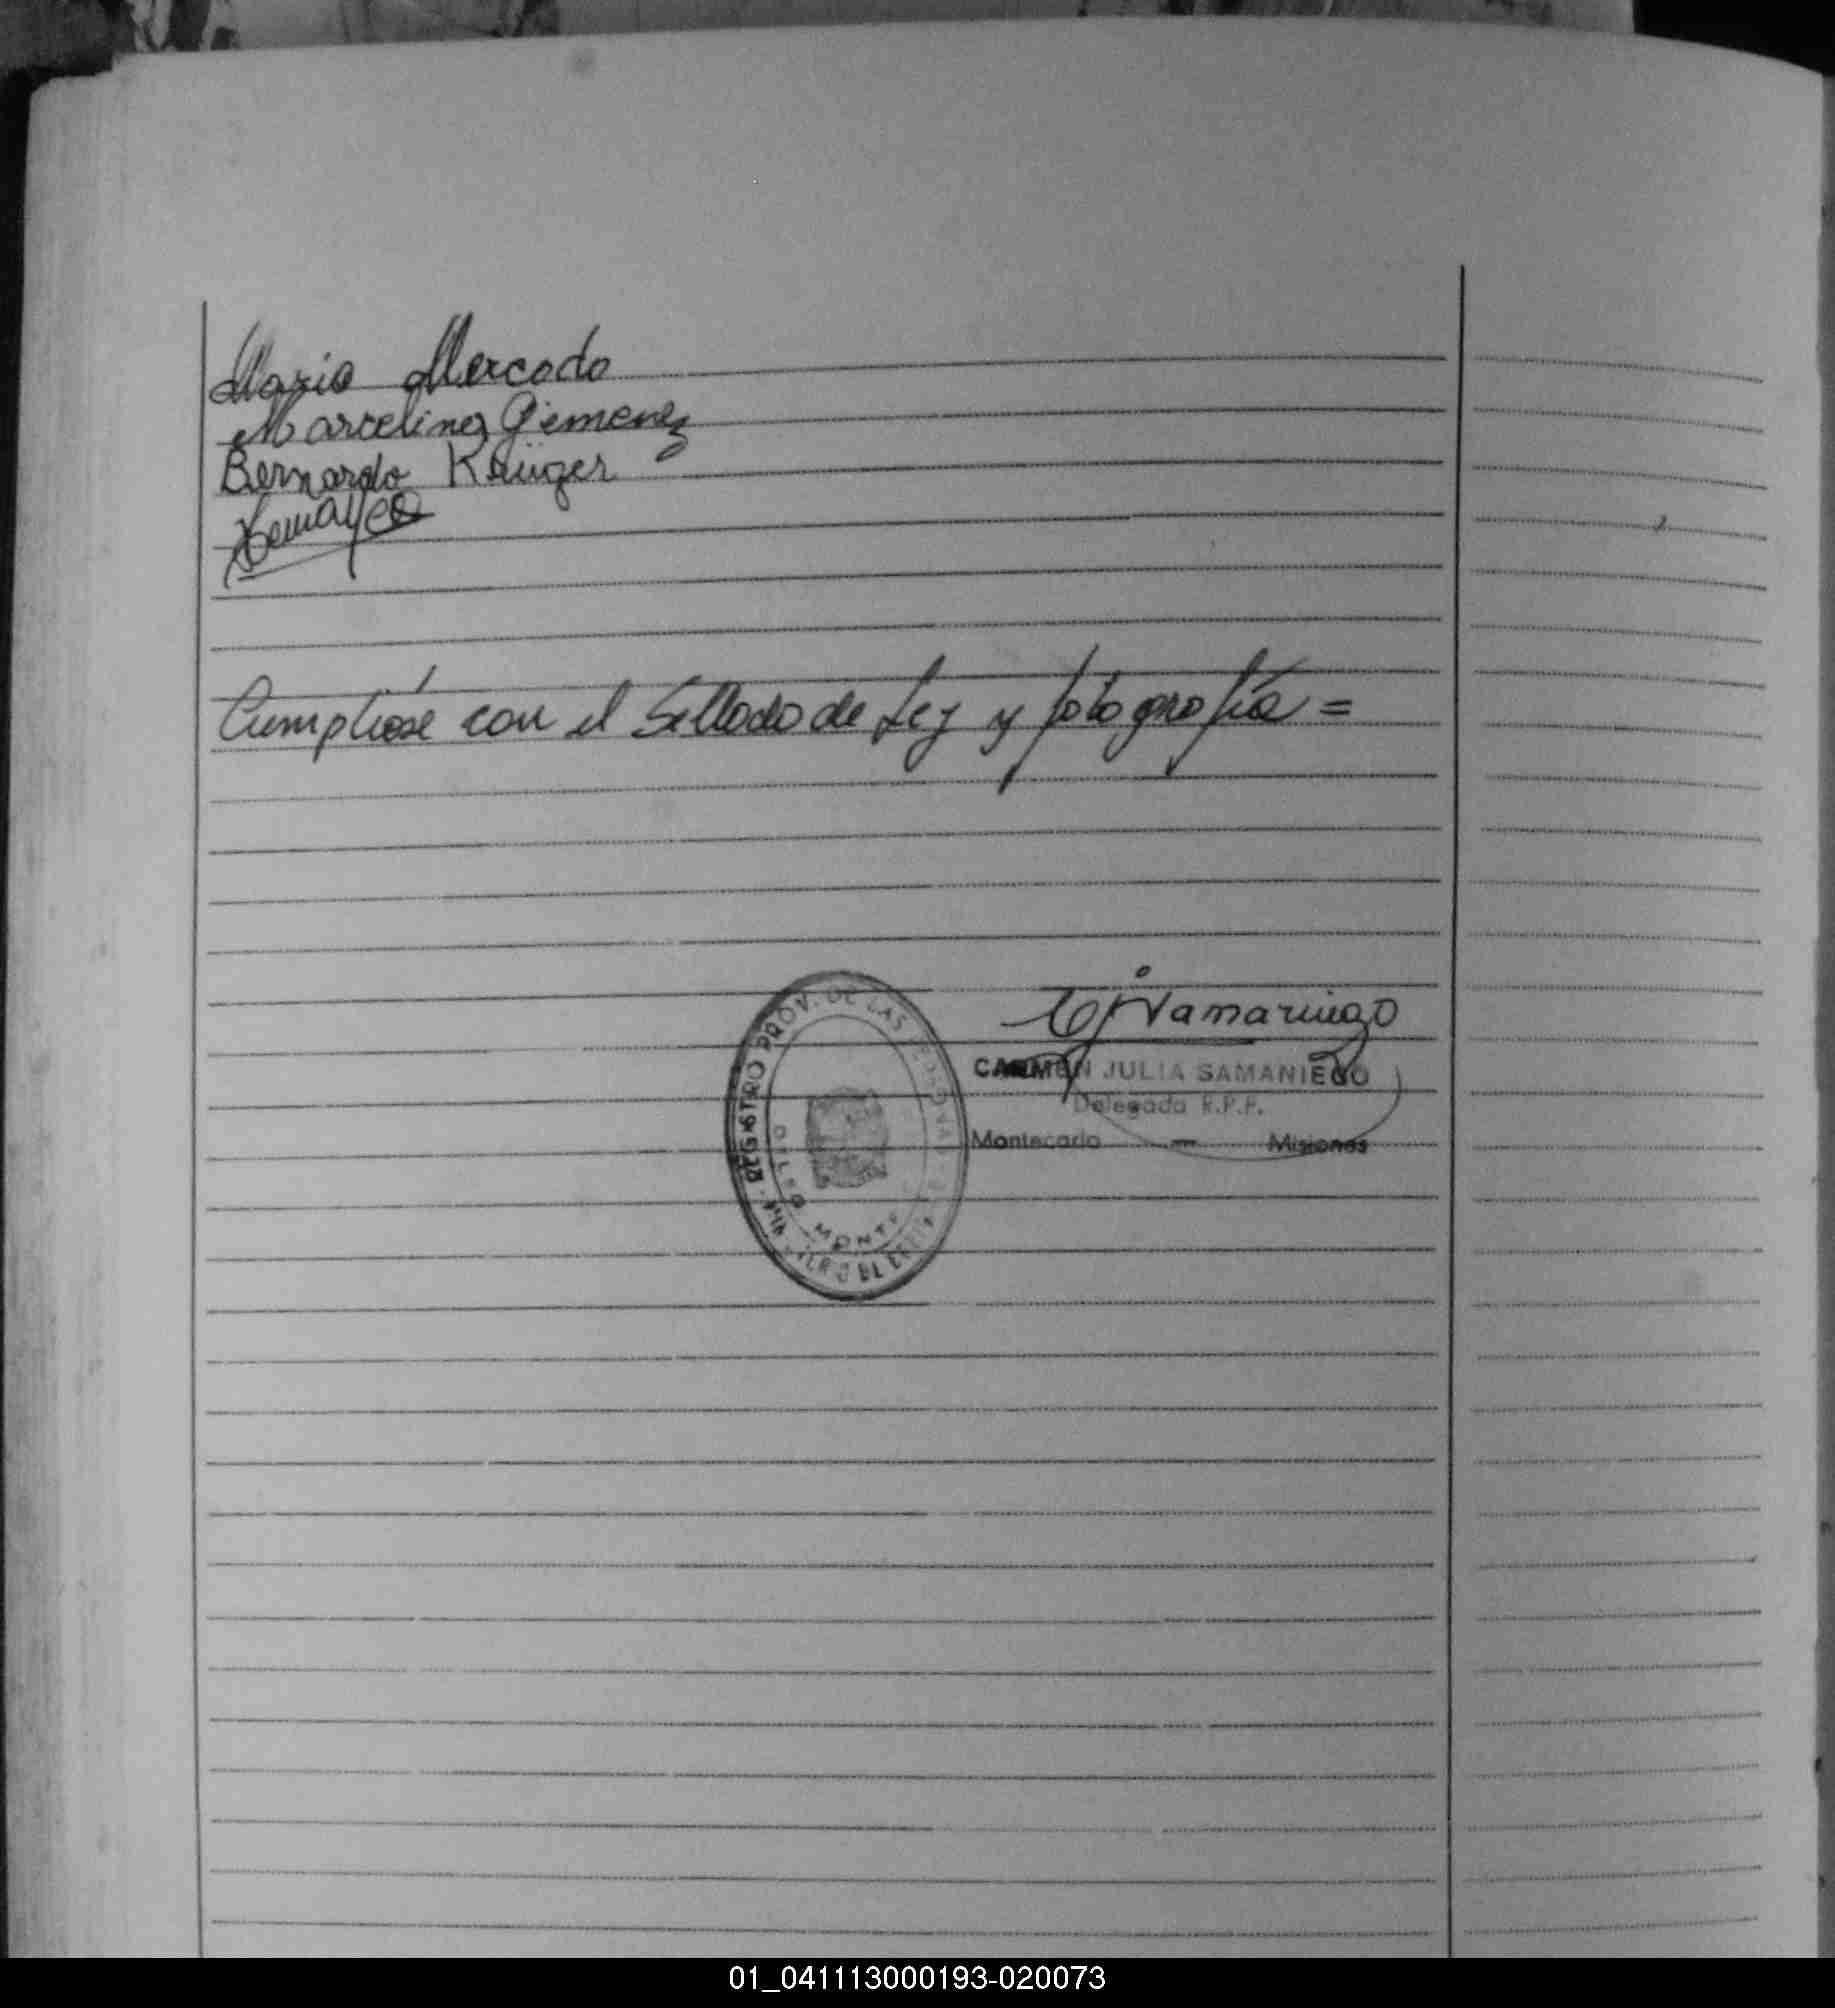 Mario Mercado
Marcelino Gimenez
Bernardo Krüger
Cumplióse con el Sellado de Ley y fotografía =
CJSamaniego
REGISTRO PROV. DE LAS PERSONAS
MONTE
CARMEN JULIA SAMANIEGO
Delegada R.P.P.
Montecarlo - Misiones
01_041113000193-020073